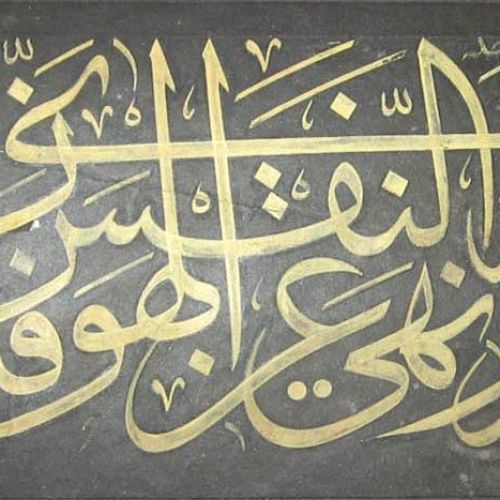 ونهى النفس عن الهوى فإن